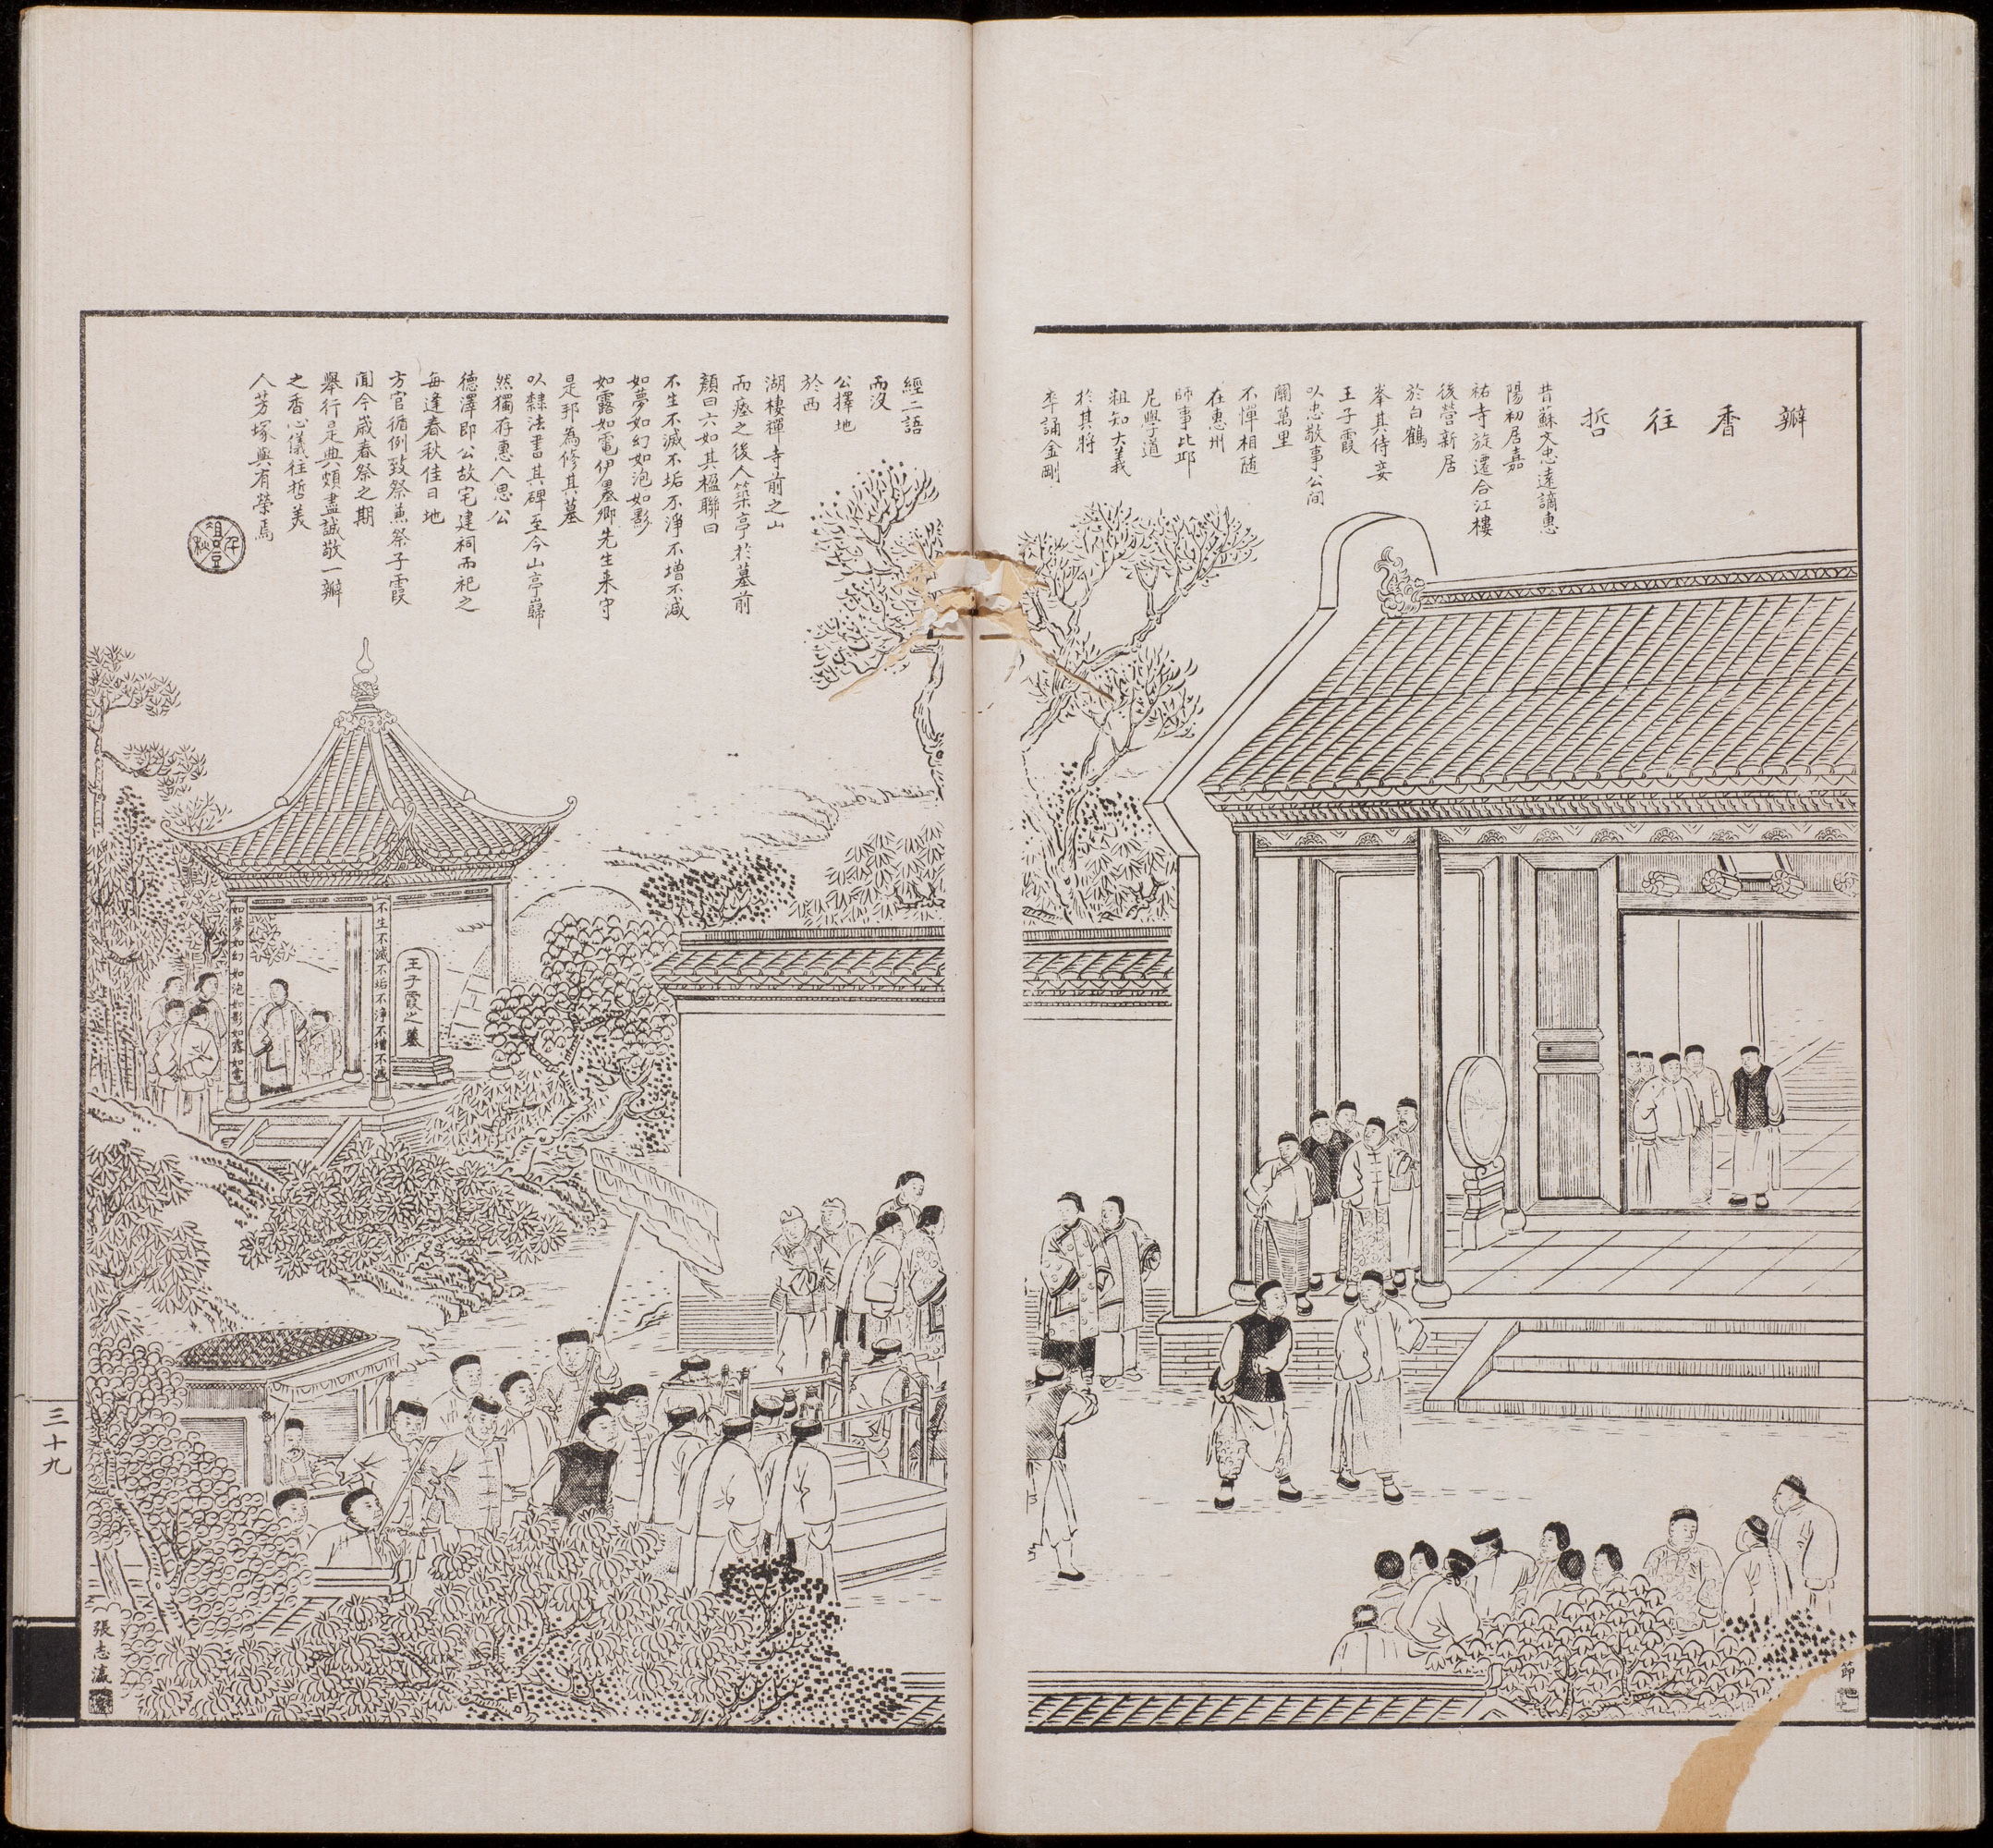 瓣香往哲
昔蘇文忠遠謫惠
陽初居嘉
祐寺旋遷合江樓
後營新居
於白鶴
峯其侍妾
王子霞
以忠敬事公間
關萬里
不憚相隨
在惠州
師事比邱
尼學道
粗知大義
於其將
卒誦金剛
經二語
而沒
公擇地
於西
湖棲禪寺前之山
而瘞之後人築亭於墓前
顏曰六如其楹聯曰
不生不滅不垢不淨不增不減
如夢如幻如泡如影
如露如電伊墨卿先生来守
是邦為修其墓
以隸法書其碑至今山亭巋
然獨存惠人思公
德澤即公故宅建祠而祀之
每逢春秋佳日地
方官循例致祭兼祭子霞
聞今歲春祭之期
舉行是典頗盡誠敬一瓣
之香心儀往哲美
人芳塚與有榮焉
俎豆千秋
不生不滅不垢不淨不增不減
如夢如幻如泡如影如露如電
王子霞之墓
三十九
張志瀛
節